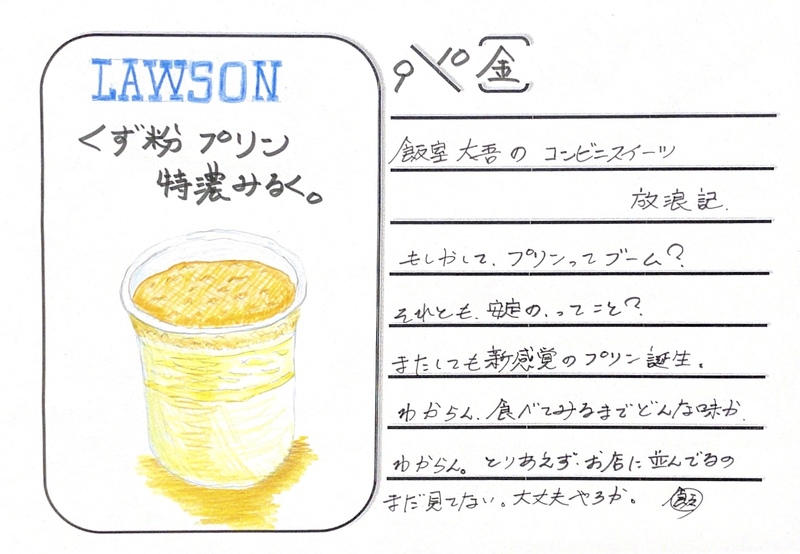 LAWSON
くず粉プリン
特濃みるく。
9/10 金
飯室大吾のコンビニスイーツ
放浪記.
もしかして、プリンってブーム?
それとも、安定の、ってこと?
またしても新感覚のプリン誕生。
わからん、食べてみるまでどんな味か、
わからん。とりあえず、お店に並んでるの
まだ見てない。大丈夫やろか。